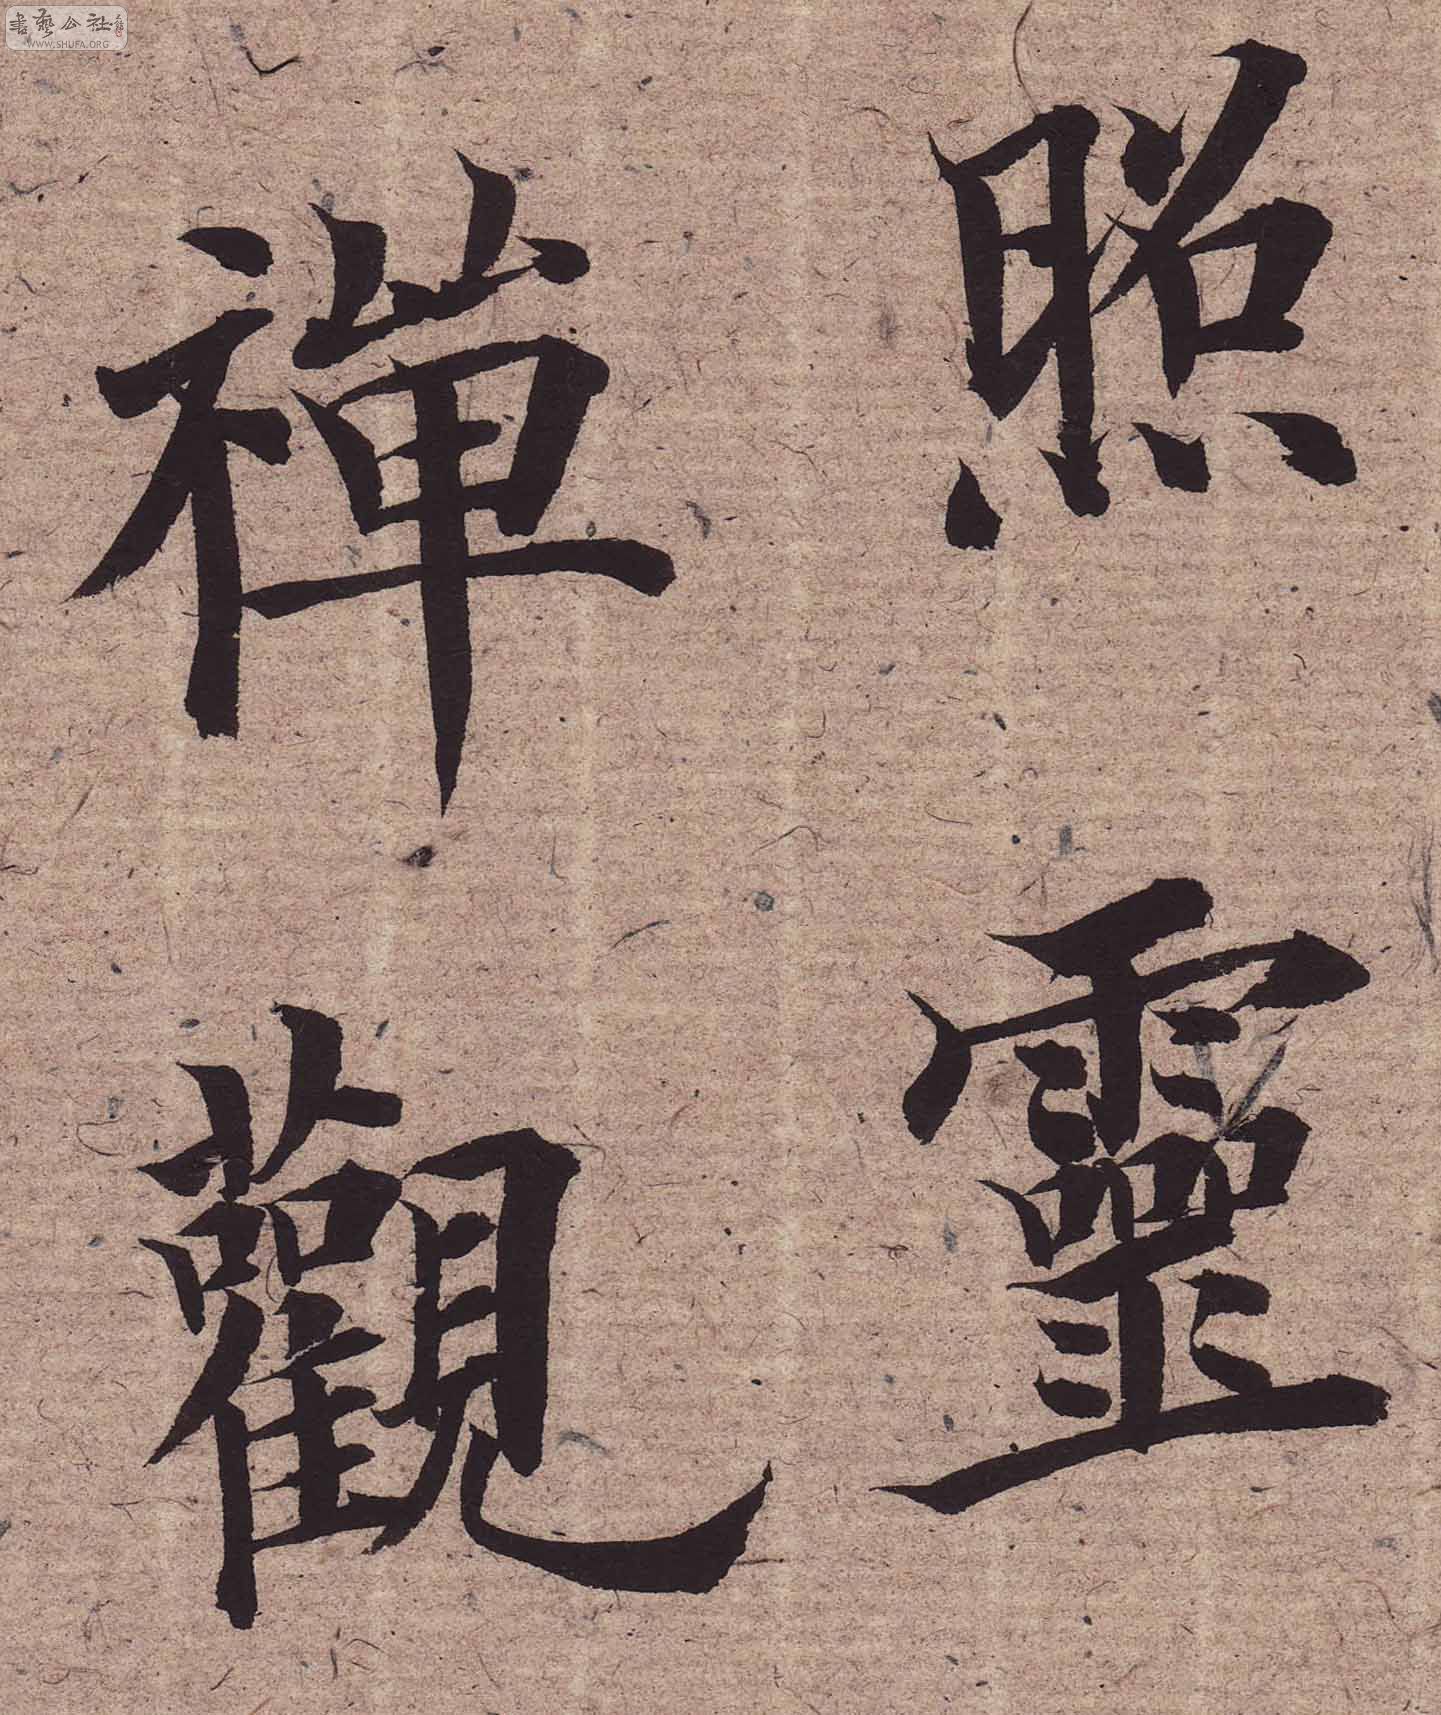 照靈
禪觀
書藝公社
WWW.SHUFA.ORG